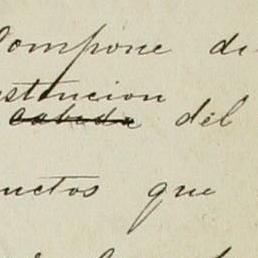 Compone de
stincion
cabeda del
uctos que